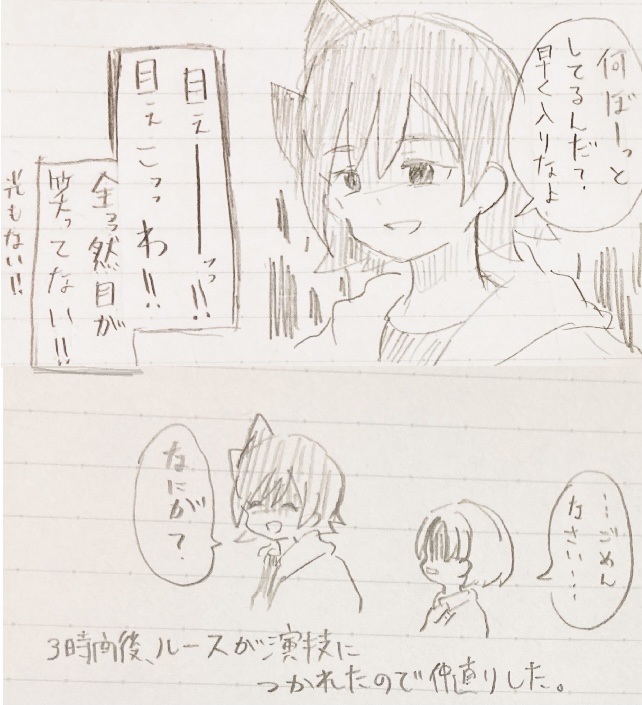 何ぼーっと
してるんだ?
早く入りなよ
目ぇ━━━ッッ!!
目ぇこっっわ!!
全っ然目が
笑ってない!!
光もない!!
…ごめん
なさい……
なにが?
3時間後、ルースが演技に
つかれたので仲直りした。